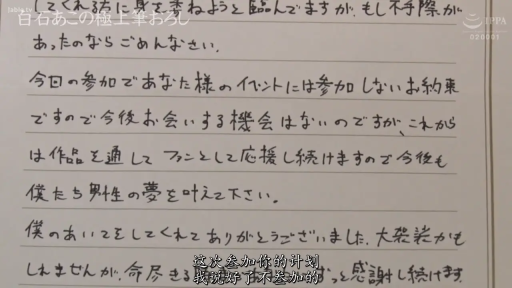 白石あこの極上筆おろし
してくれる方に身を委ねようと臨んでますが、もし不手際が
あったのならごめんなさい。
今回の参加であなた様のイベントには参加しないお約束
ですので今後お会いする機会はないのですが、これから
は作品を通してファンとして応援し続けますので今後も
僕たち男性の夢を叶えて下さい。
僕のあいてをしてくれてありがとうございました。大発法かも
しれませんが、命尽きる
っと感謝し続けます
这次参加你的计划
我说好了不参加的
IPPA